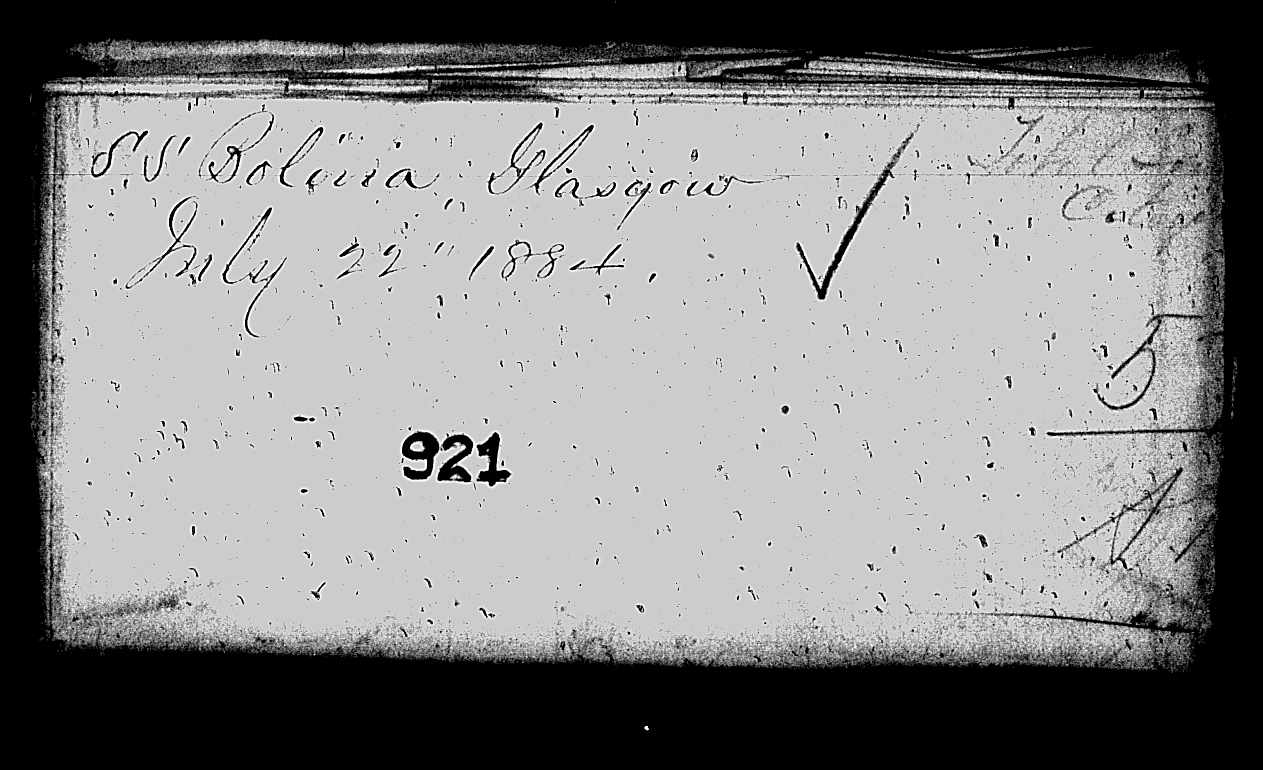 S.S. Bolivia Glasgow
July 22" 1884.
921
5